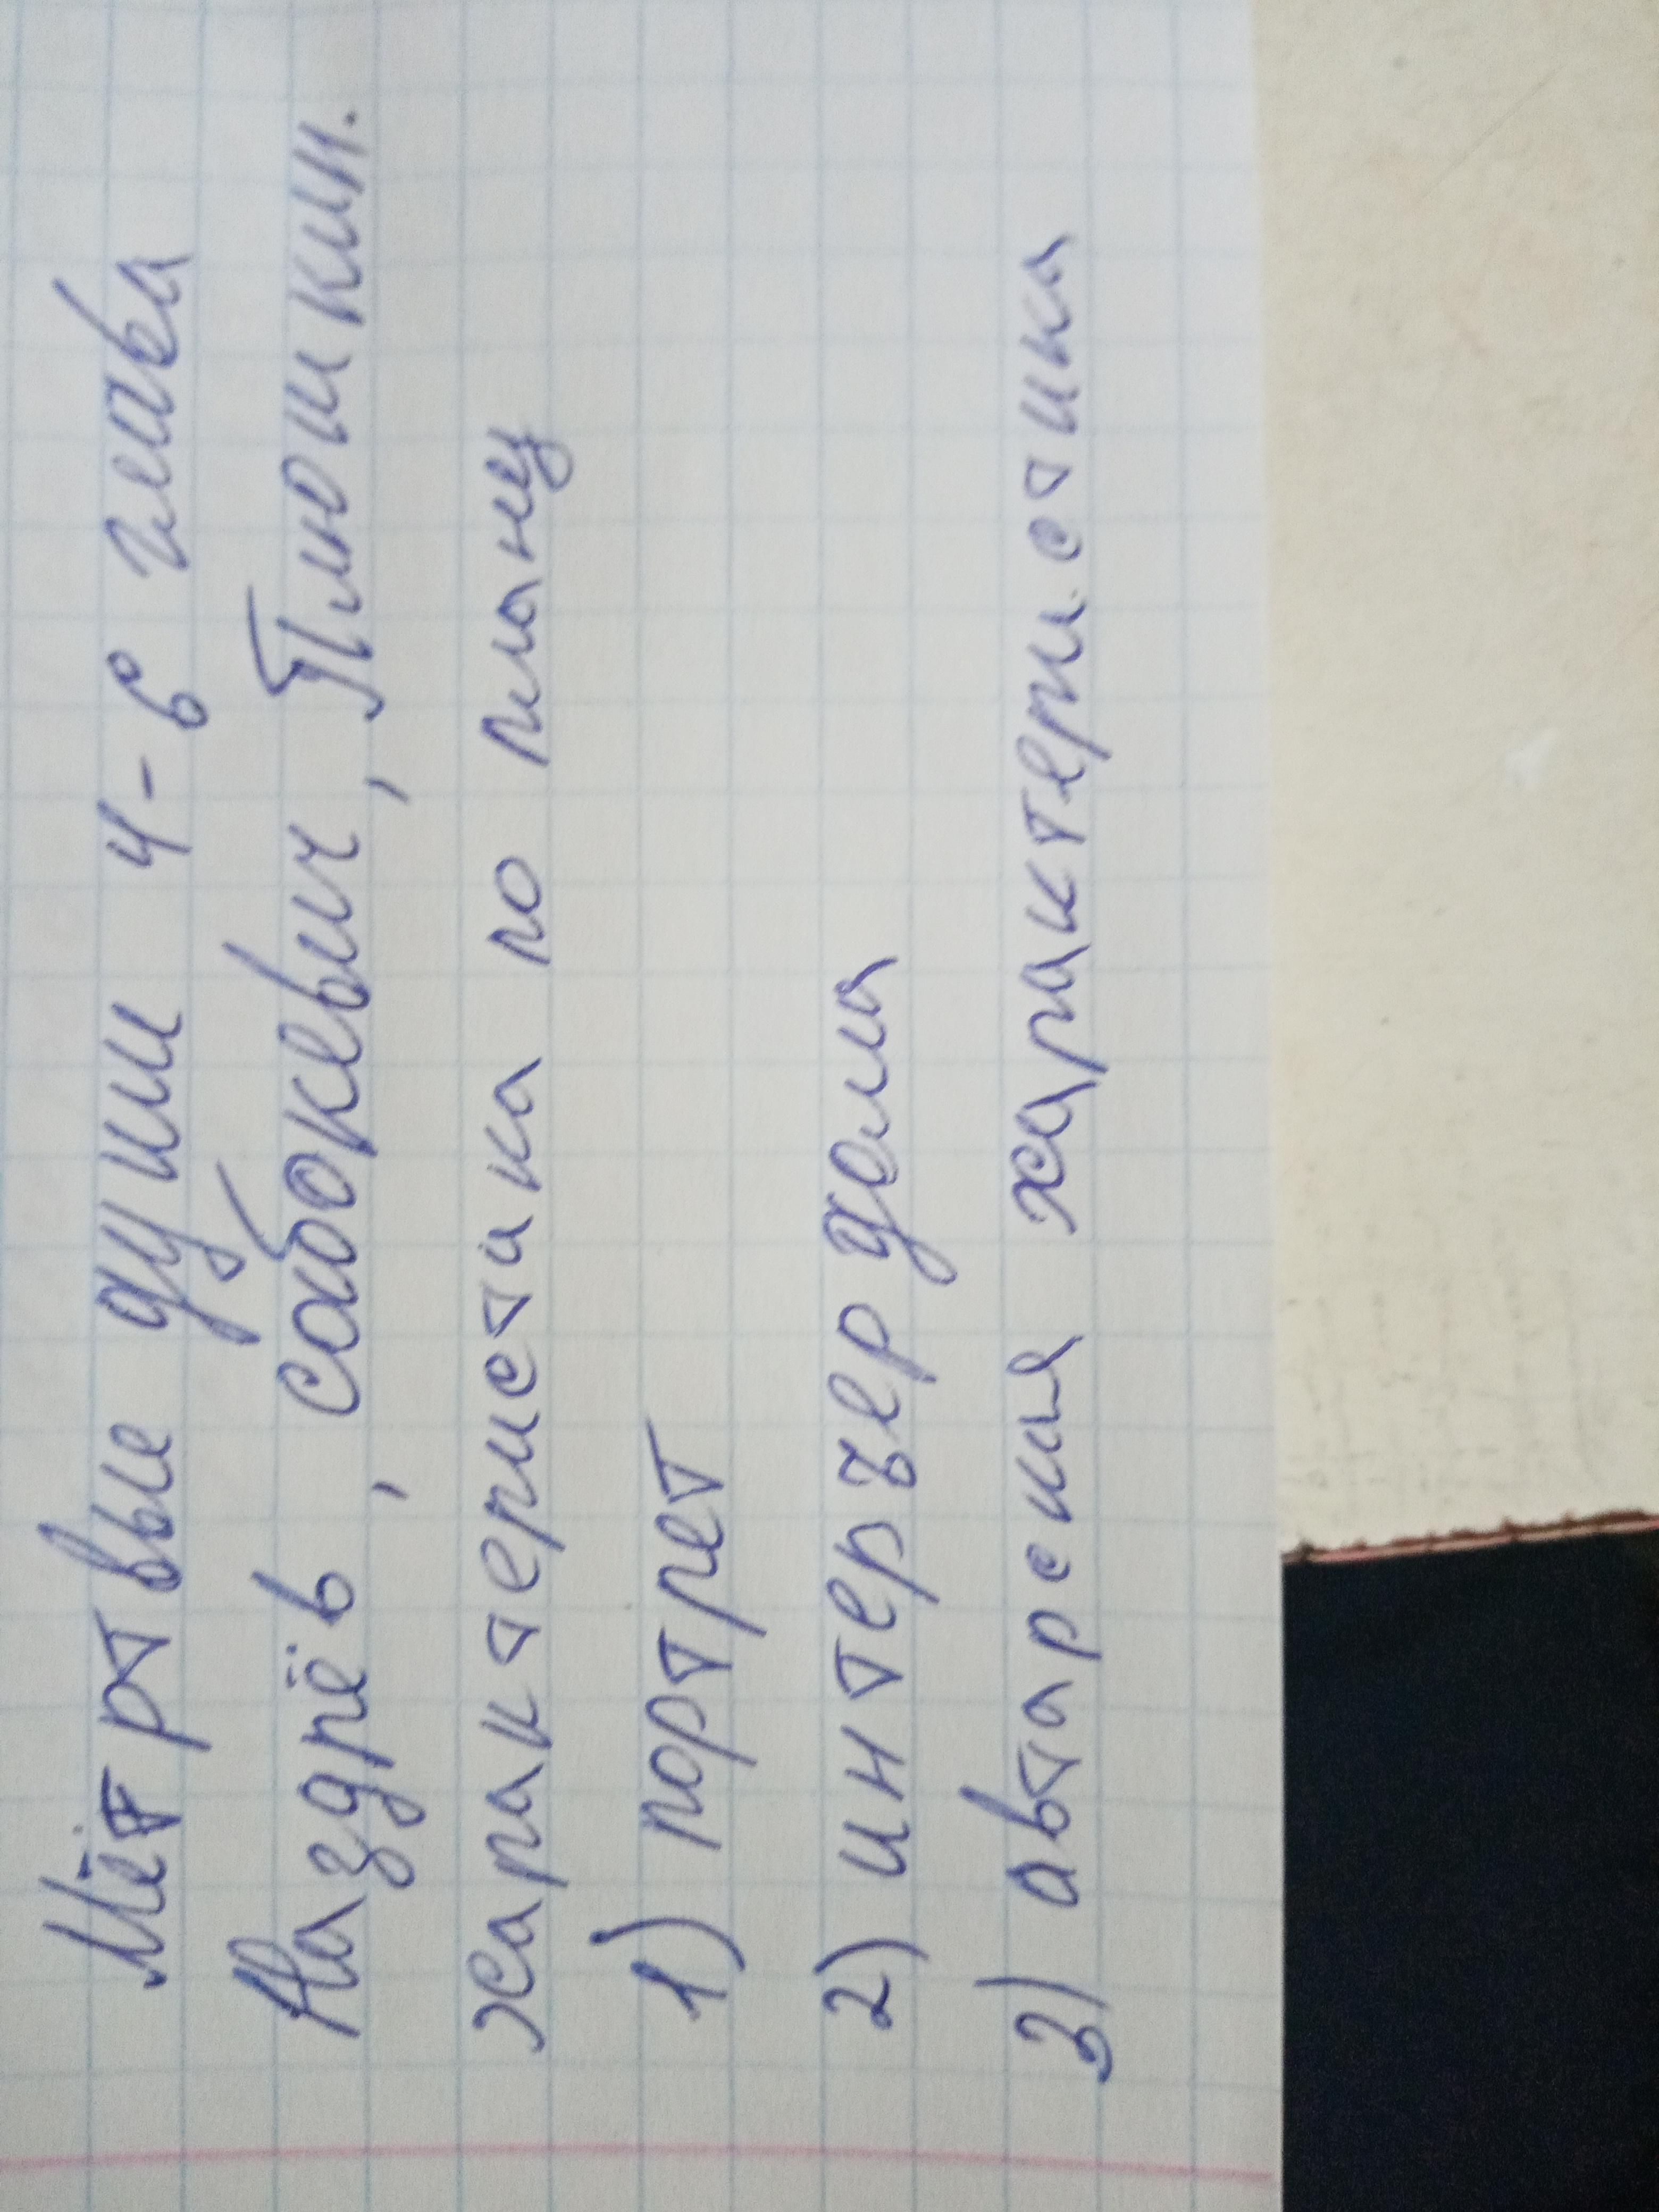 Мётртвые души 4-6 глава
Наздрёв, сабокевич, Плюшкин.
характеристика по плану
1) портрет
2) интеръер дома
3) автарская характеристика